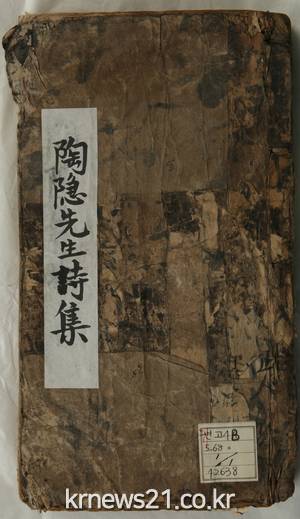 陶隐先生詩集
고4B
5-68
42638
krnews21.co.kr